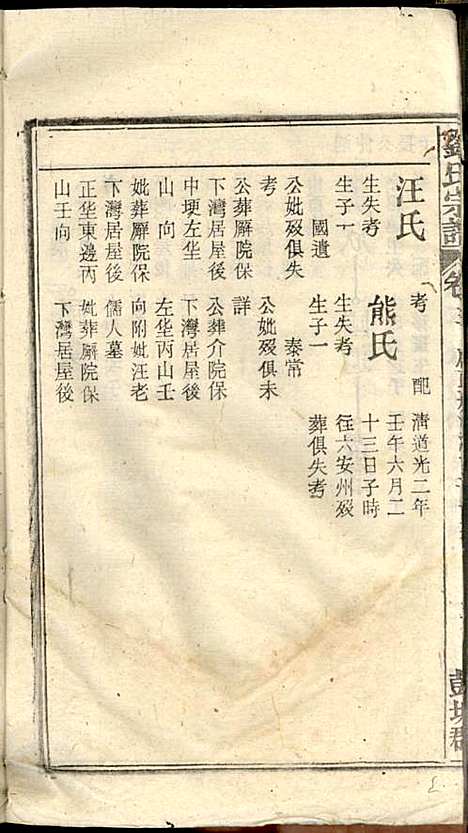 劉氏宗譜
卷
彭城郡
考　配　清道光二年
汪氏　熊氏　壬午六月二
生失考　生失考　十三日子時
生子一　生子一　徃六安州歿
國遺　泰常　葬俱失考
公妣歿俱失　公妣歿俱未
考　詳
公葬廨院保　公葬介院保
下灣居屋後　下灣居屋後
中埂左坐　左坐丙山壬
山向　向附妣汪老
妣葬廨院保　儒人墓
下灣居屋後　妣葬廨院保
正坐東邊丙　下灣居屋後
山壬向